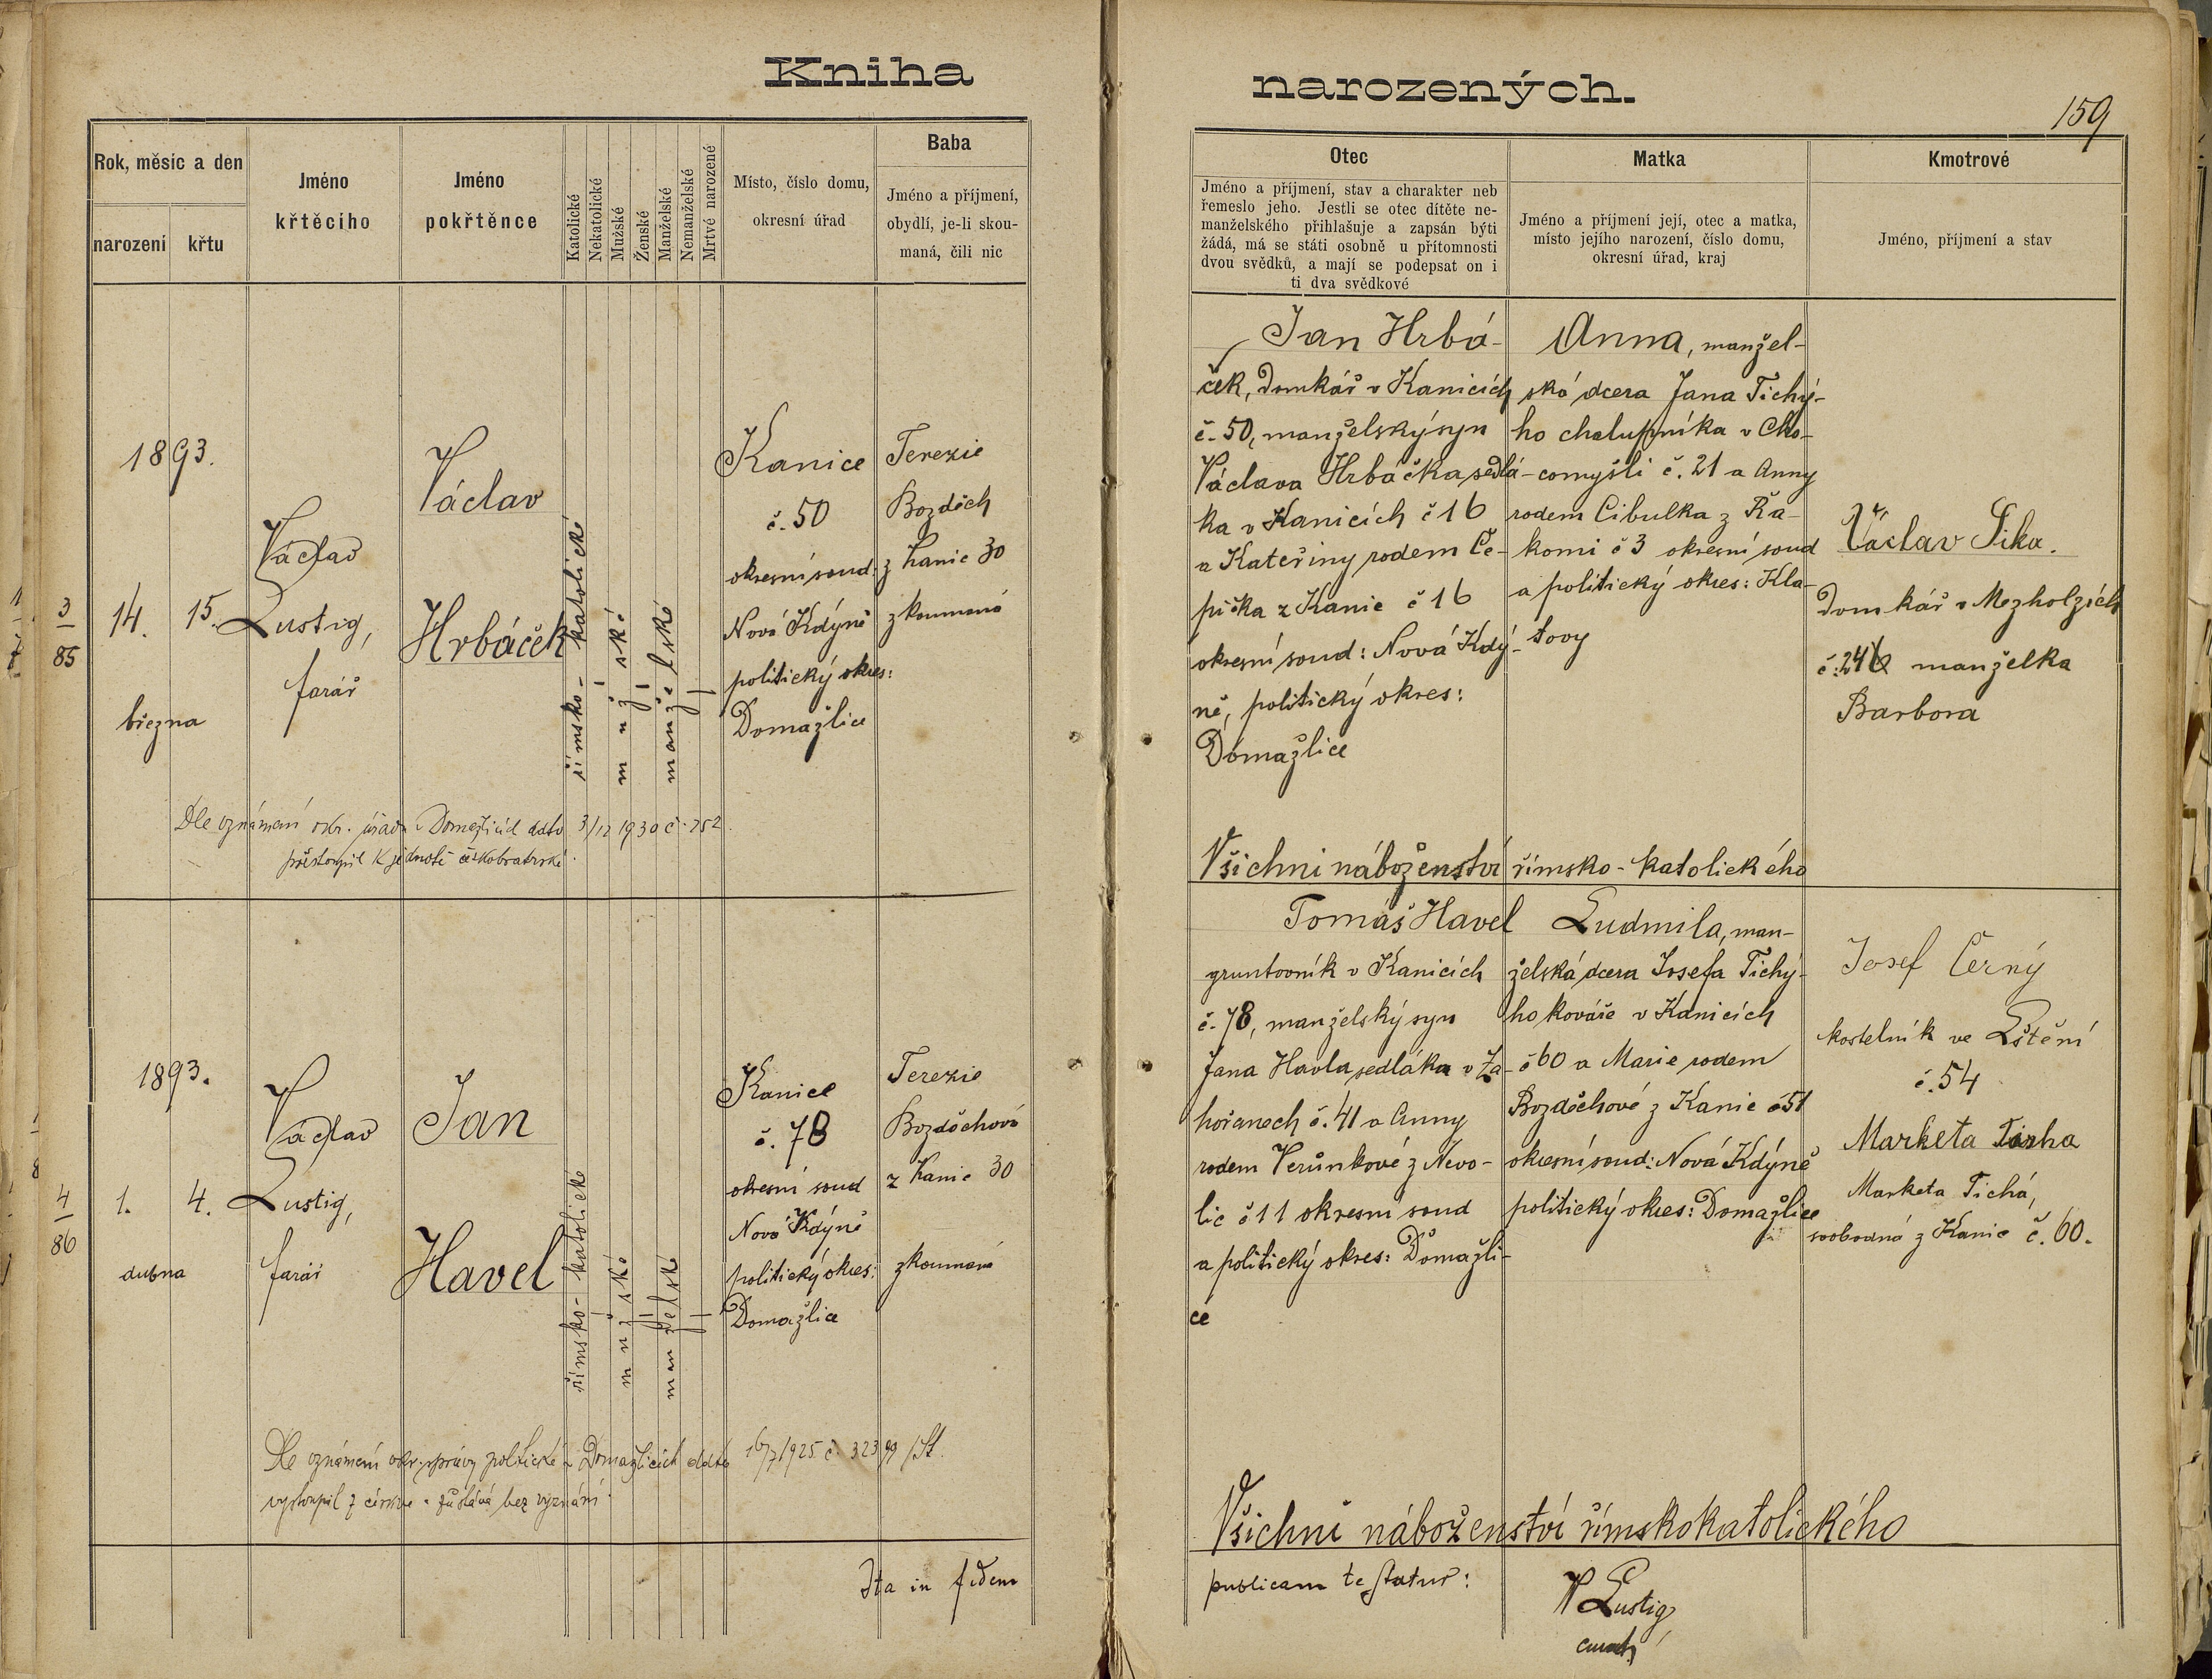 Kniha narozených.
159
Rok, měsíc a den
narození
křtu
Jméno
křtěcího
Jméno
pokřtěnce
Katolické
Nekatolické
Mužské
Ženské
Manželské
Nemanželské
Mrtvé narozené
Místo, číslo domu,
okresní úřad
Baba
Jméno a příjmení,
obydlí, je-li skou-
maná, čili nic
Otec
Jméno a příjmení, stav a charakter neb
řemeslo jeho. Jestli se otec dítěte ne-
manželského přihlašuje a zapsán býti
žádá, má se státi osobně u přítomnosti
dvou svědků, a mají se podepsat on i
ti dva svědkové
Matka
Jméno a příjmení její, otec a matka,
místo jejího narození, číslo domu,
okresní úřad, kraj
Kmotrové
Jméno, příjmení a stav
3
85
1893.
14. 15.
března
Václav
Lustig,
farář
Václav
Hrbáček
římsko-katolické
mužské
manželské
Kanice
č. 50
okresní soud:
Nová Kdýně
politický okres:
Domažlice
Terezie
Bozděch
z Kanic 30
zkoumaná
Jan Hrbá-
ček, domkář v Kanicích
č. 50, manželský syn
Václava Hrbáčka sedlá-
ka v Kanicích č 16
a Kateřiny rodem Če-
pička z Kanic č 16
okresní soud: Nová Kdý-
ně, politický okres:
Domažlice
Anna, manžel-
ská dcera Jana Tichý-
ho chalupníka v Cho-
comyšli č. 21 a Anny
rodem Cibulka z Ra-
komi č 3 okresní soud
a politický okres: Kla-
tovy
Václav Sika.
domkář v Mezholzích
č. 24 manželka
Barbora
Dle oznámení okr. úřadu v Domažlicích ddto 3/12 1930 č. 752
přestoupil k jednotě českobratrské.
Všichni náboženství římsko-katolického
4
86
1893.
1. 4.
dubna
Václav
Lustig,
farář
Jan
Havel
římsko-katolické
mužské
manželské
Kanice
č. 78
okresní soud
Nová Kdýně
politický okres:
Domažlice
Terezie
Bozděchová
z Kanic 30
zkoumaná
Tomáš Havel
gruntovník v Kanicích
č. 78, manželský syn
Jana Havla sedláka v Za-
hořanech č. 41 a Anny
rodem Verůnkové z Nevo-
lic č 11 okresní soud
a politický okres: Domažli-
ce
Ludmila, man-
želská dcera Josefa Tichý-
ho kováře v Kanicích
č 60 a Marie rodem
Bozděchové z Kanic č 51
okresní soud: Nová Kdýně
politický okres: Domažlice
Josef Černý
kostelník ve Lštění
č. 54
Marketa
Marketa Tichá,
svobodná z Kanic č. 60.
Dle oznámení okr. správy politické v Domažlicích ddto 16/7 1925 č. 32399/St.
vystoupil z církve a zůstává bez vyznání.
Všichni náboženství římskokatolického
Ita in fidem
publicam testatur:
V Lustig